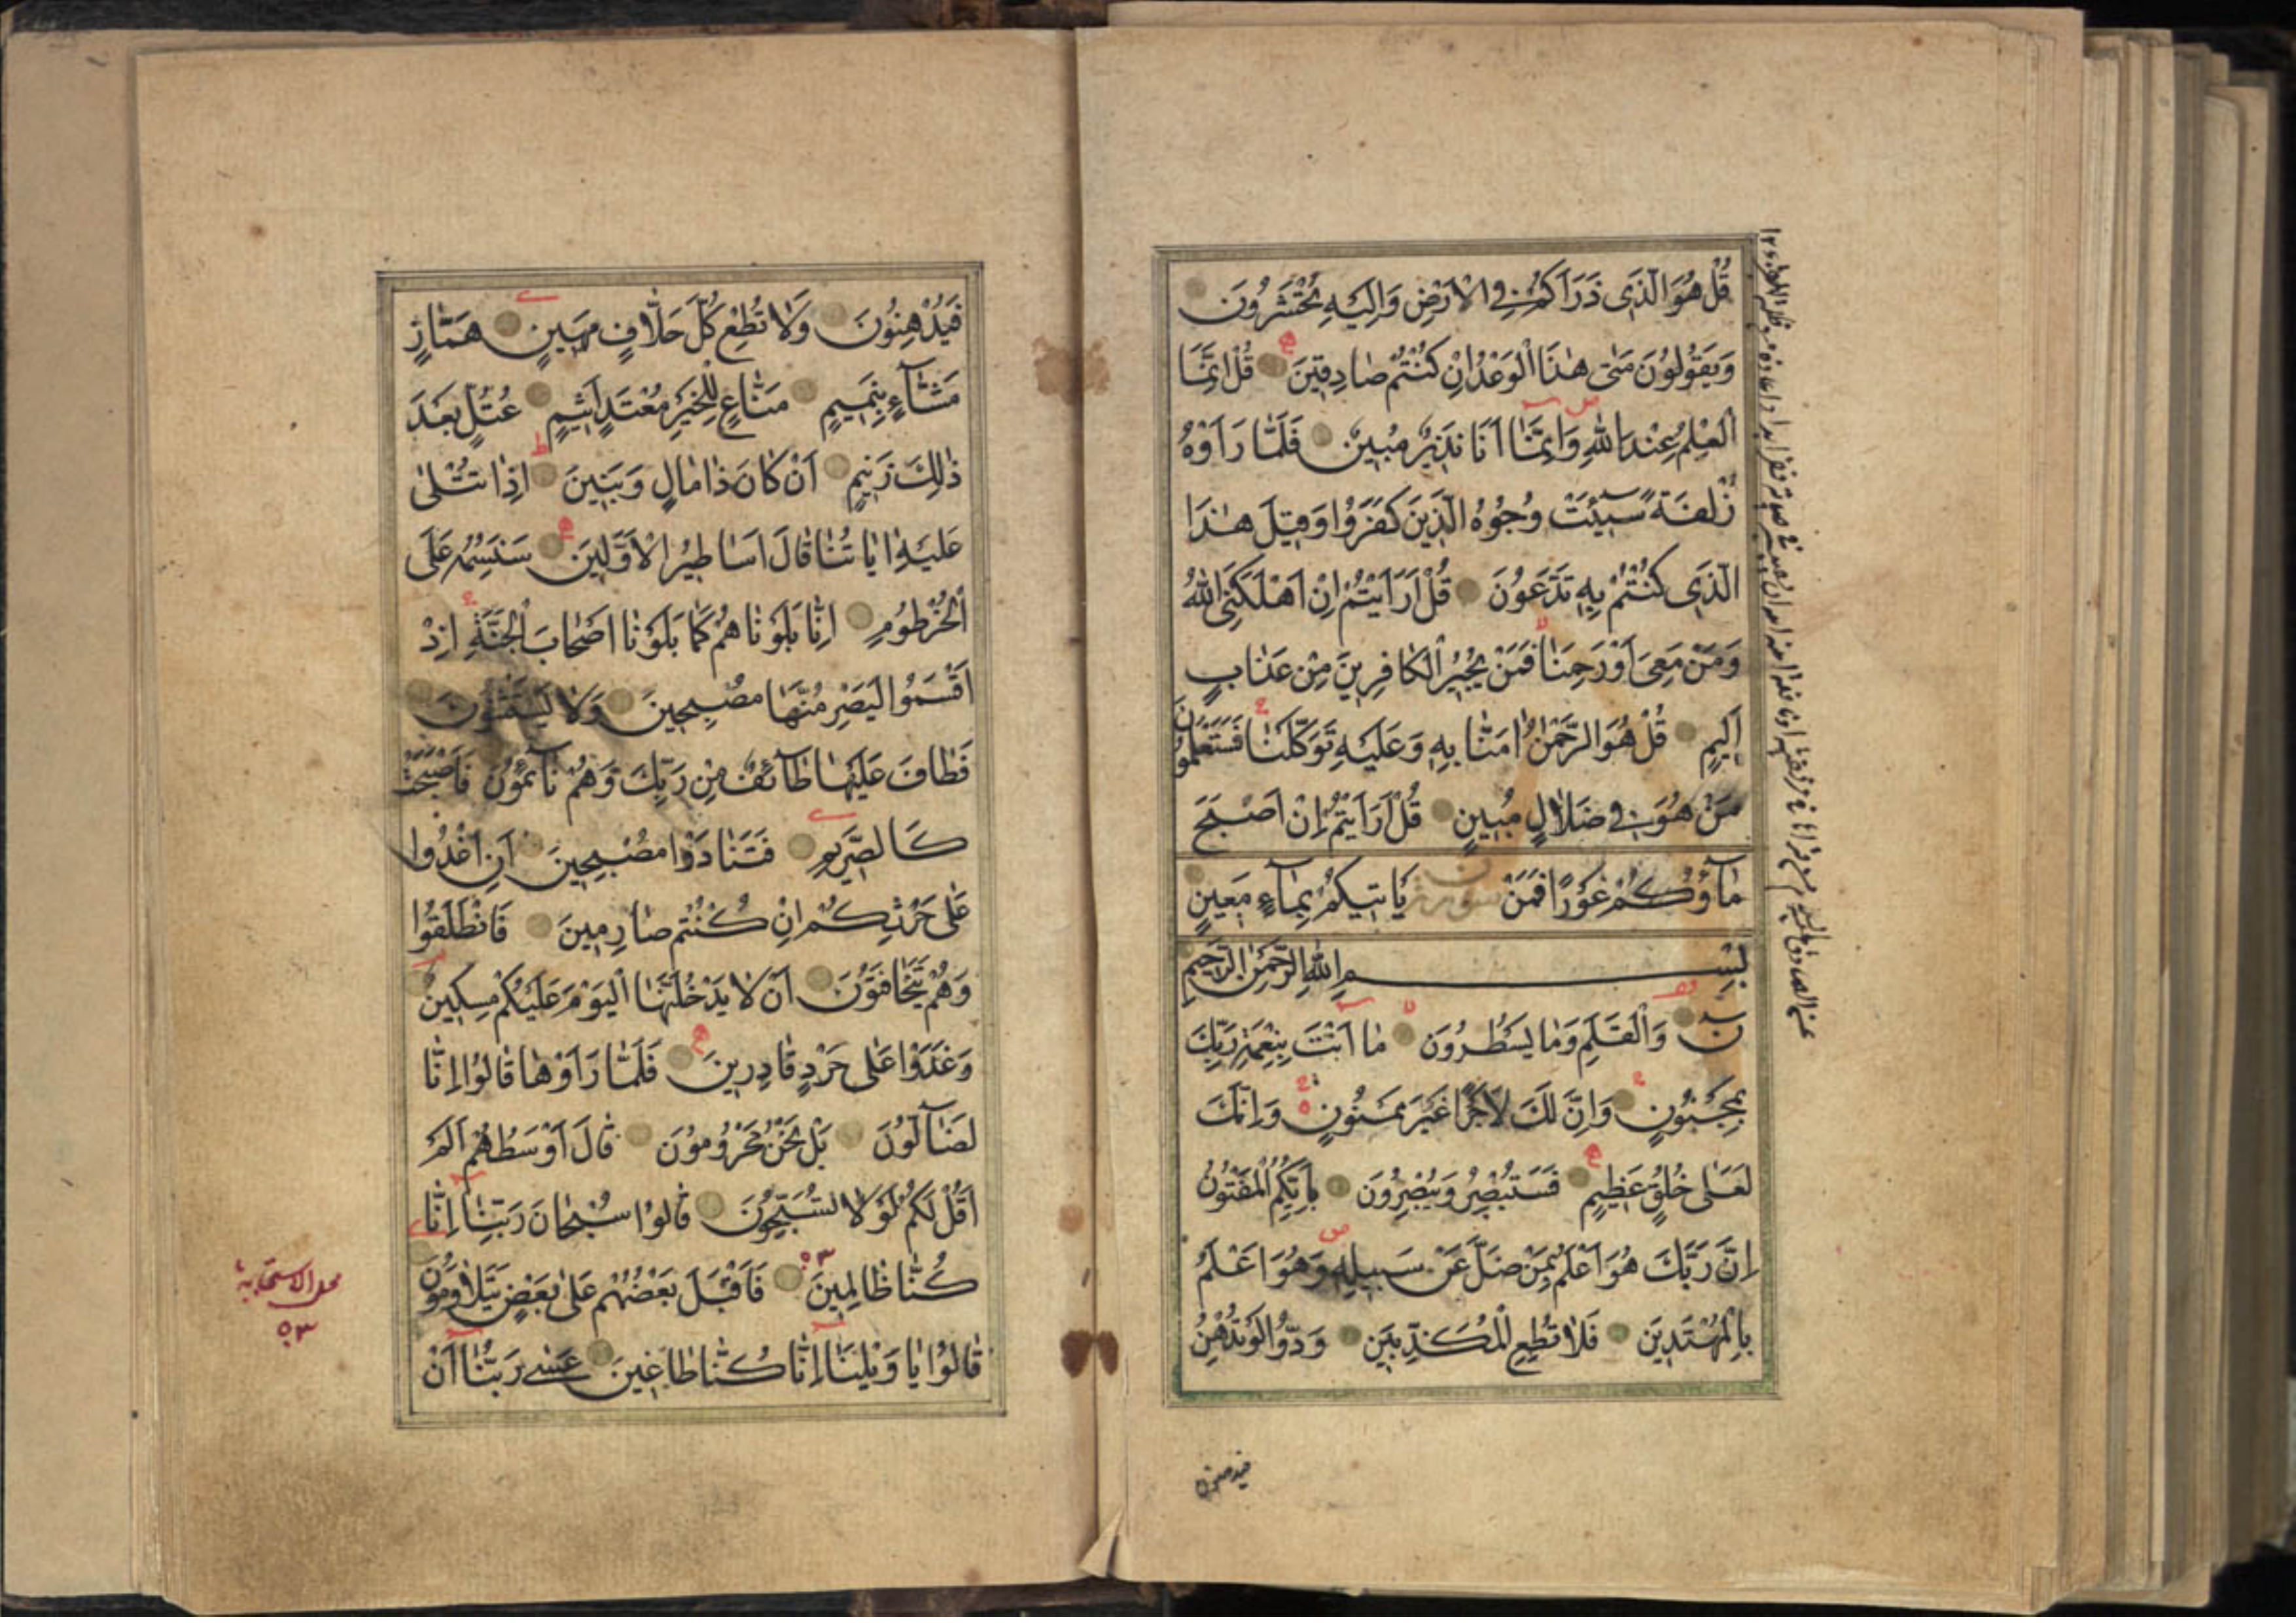 قُلْ هُوَ الَّذَى ذَرَاَكُمْ فِى الْاَرْضِ وَاِلَيْهِ تُحْشَرُونَ
وَيَقُولُونَ مَتٰى هٰذَا الْوَعْدُ اِنْ كُنْتُمْ صَادِقِينَ قُلْ اِنَّمَا
الْعِلْمُ عِنْدَ اللّٰهِ وَاِنَّمَا اَنَا نَذِيرٌ مُبِينٌ فَلَمَّا رَاَوْهُ
زُلْفَةً سِيْئَتْ وُجُوهُ الَّذِينَ كَفَرُوا وَقِيلَ هٰذَا
الَّذِى كُنْتُمْ بِهِ تَدَّعُونَ قُلْ اَرَاَيْتُمْ اِنْ اَهْلَكَنِىَ اللّٰهُ
وَمَنْ مَعِىَ اَوْ رَحِمَنَا فَمَنْ يُجِيرُ الْكَافِرِينَ مِنْ عَذَابٍ
اَلِيمٍ قُلْ هُوَ الرَّحْمٰنُ اٰمَنَّا بِهِ وَعَلَيْهِ تَوَكَّلْنَا فَسَتَعْلَمُونَ
مَنْ هُوَ فِى ضَلَالٍ مُبِينٍ قُلْ اَرَاَيْتُمْ اِنْ اَصْبَحَ
مَآؤُكُمْ غَوْرًا فَمَنْ يَاْتِيكُمْ بِمَآءٍ مَعِينٍ
بِسْمِ اللّٰهِ الرَّحْمٰنِ الرَّحِيمِ
نٓ وَالْقَلَمِ وَمَا يَسْطُرُونَ مَا اَنْتَ بِنِعْمَةِ رَبِّكَ
بِمَجْنُونٍ وَاِنَّ لَكَ لَاَجْرًا غَيْرَ مَمْنُونٍ وَاِنَّكَ
لَعَلٰى خُلُقٍ عَظِيمٍ فَسَتُبْصِرُ وَيُبْصِرُونَ بِاَيِّكُمُ الْمَفْتُونُ
اِنَّ رَبَّكَ هُوَ اَعْلَمُ بِمَنْ ضَلَّ عَنْ سَبِيلِهِ وَهُوَ اَعْلَمُ
بِالْمُهْتَدِينَ فَلَا تُطِعِ الْمُكَذِّبِينَ وَدُّوا لَوْ تُدْهِنُ
فيدهنون
فَيُدْهِنُونَ وَلَا تُطِعْ كُلَّ حَلَّافٍ مَهِينٍ هَمَّازٍ
مَشَّآءٍ بِنَمِيمٍ مَنَّاعٍ لِلْخَيْرِ مُعْتَدٍ اَثِيمٍ عُتُلٍّ بَعْدَ
ذٰلِكَ زَنِيمٍ اَنْ كَانَ ذَا مَالٍ وَبَنِينَ اِذَا تُتْلٰى
عَلَيْهِ اٰيَاتُنَا قَالَ اَسَاطِيرُ الْاَوَّلِينَ سَنَسِمُهُ عَلَى
الْخُرْطُومِ اِنَّا بَلَوْنَاهُمْ كَمَا بَلَوْنَا اَصْحَابَ الْجَنَّةِ اِذْ
اَقْسَمُوا لَيَصْرِمُنَّهَا مُصْبِحِينَ وَلَا يَسْتَثْنُونَ
فَطَافَ عَلَيْهَا طَآئِفٌ مِنْ رَبِّكَ وَهُمْ نَآئِمُونَ فَاَصْبَحَتْ
كَالصَّرِيمِ فَتَنَادَوْا مُصْبِحِينَ اَنِ اغْدُوا
عَلٰى حَرْثِكُمْ اِنْ كُنْتُمْ صَارِمِينَ فَانْطَلَقُوا
وَهُمْ يَتَخَافَتُونَ اَنْ لَا يَدْخُلَنَّهَا الْيَوْمَ عَلَيْكُمْ مِسْكِينٌ
وَغَدَوْا عَلٰى حَرْدٍ قَادِرِينَ فَلَمَّا رَاَوْهَا قَالُوا اِنَّا
لَضَآلُّونَ بَلْ نَحْنُ مَحْرُومُونَ قَالَ اَوْسَطُهُمْ اَلَمْ
اَقُلْ لَكُمْ لَوْلَا تُسَبِّحُونَ قَالُوا سُبْحَانَ رَبِّنَا اِنَّا
كُنَّا ظَالِمِينَ فَاَقْبَلَ بَعْضُهُمْ عَلٰى بَعْضٍ يَتَلَاوَمُونَ
قَالُوا يَا وَيْلَنَا اِنَّا كُنَّا طَاغِينَ عَسٰى رَبُّنَا اَنْ
محل الاستجابة
٥٣